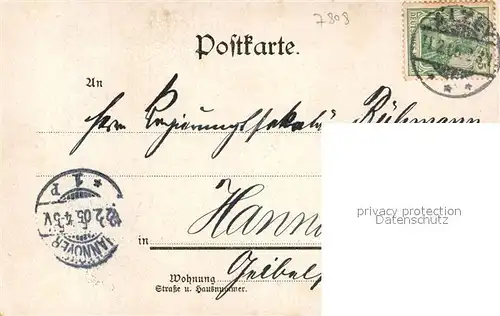 7808
Postkarte.
An
Herrn Regierungssekretär Rühmann
privacy protection
Datenschutz
in Hann
Geibel
Wohnung
Straße u. Hausnummer.
HANNOVER
1 P
12.2.05.4-5V.